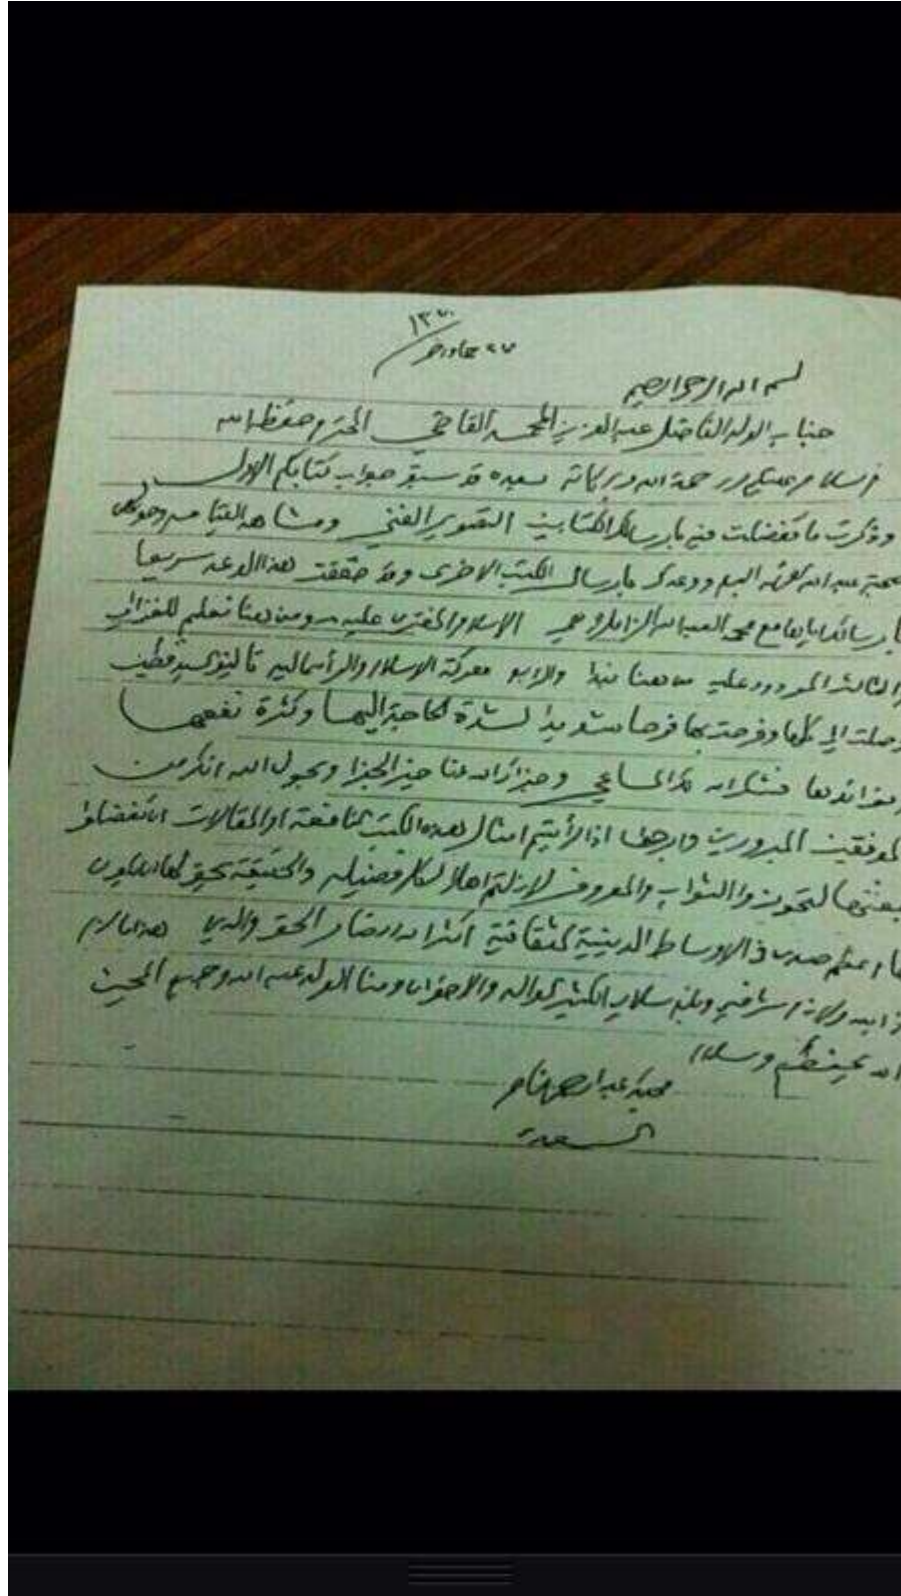 ١٣٧٠
٢٧ جماد
بسم الله الرحمن الرحيم
جناب الولد الفاضل عبد العزيز المحمد القاضي المحترم حفظه الله
السلام عليكم ورحمة الله وبركاته بعده قد سبق جواب كتابكم الاول
وذكرت ما تفضلت فيه بارسال الكتابين التصوير الفني ومشاهد القيامه
صحبة عبد الله السبع ووعدك بارسال الكتب الاخرى وقد حققت هذا الوعد سريعا
مع محمد العبد الله الاسلام المفترى عليه ومن هنا نعلم للغزالي
والثالث المردود عليه من هنا نبدا والرابع معركة الاسلام والرأسماليه تاليف سيد قطب
وصلت الي كلها وفرحت بها فرحا شديدا لشدة الحاجة اليها وكثرة نفعها
وفوائدها فنشكر الله المساعي وجزاك الله عنا خير الجزا وبحول الله انك من
الموفقين المبرورين وارجوا اذا رأيتم امثال هذه الكتب النافعة او المقالات ان تتفضلوا
ببعثها لتحوزوا الثواب والمعروف لازلتم اهلا لكل فضيله والحقيقة يحق لها ان يكون
صدى في الاوساط الدينية الثقافية اكثر الله انصار الحق هذا ما لزم
وبلغ سلامي الكثير الوالد والاخوان ومنا الولد عبد الله وجميع المحبين
الله يحفظكم وسلام
محبك عبد الرحمن الناصر
السعدي